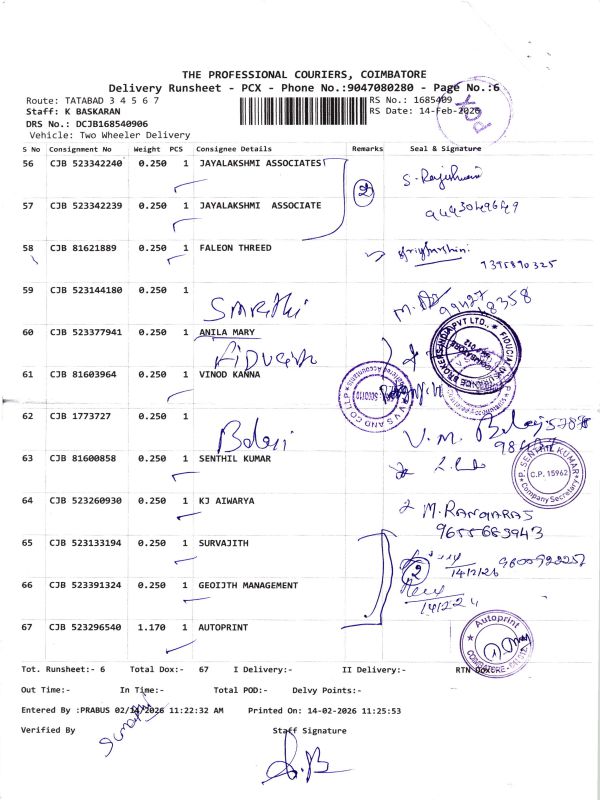 THE PROFESSIONAL COURIERS, COIMBATORE
Delivery Runsheet - PCX - Phone No.:9047080280 - Page No.:6
Route: TATABAD 3 4 5 6 7 RS No.: 1685409
Staff: K BASKARAN RS Date: 14-Feb-2026
DRS No.: DCJB168540906
Vehicle: Two Wheeler Delivery
S No Consignment No Weight PCS Consignee Details Remarks Seal & Signature
56 CJB 523342240 0.250 1 JAYALAKSHMI ASSOCIATES
2
57 CJB 523342239 0.250 1 JAYALAKSHMI ASSOCIATE
58 CJB 81621889 0.250 1 FALEON THREED
9395890325
59 CJB 523144180 0.250 1
60 CJB 523377941 0.250 1 ANILA MARY
61 CJB 81603964 0.250 1 VINOD KANNA
62 CJB 1773727 0.250 1
Balaji V. M. Balaji
63 CJB 81600858 0.250 1 SENTHIL KUMAR
P. SENTHIL KUMAR
C.P. 15962
Company Secretary
64 CJB 523260930 0.250 1 KJ AIWARYA
M. RANGARAS
9655683943
65 CJB 523133194 0.250 1 SURVAJITH
2
14/2/26
66 CJB 523391324 0.250 1 GEOIJTH MANAGEMENT
67 CJB 523296540 1.170 1 AUTOPRINT
Autoprint
COIMBATORE
Tot. Runsheet:- 6 Total Dox:- 67 I Delivery:- II Delivery:- RTN Dox:-
Out Time:- In Time:- Total POD:- Delvy Points:-
Entered By :PRABUS 02/14/2026 11:22:32 AM Printed On: 14-02-2026 11:25:53
Verified By Staff Signature